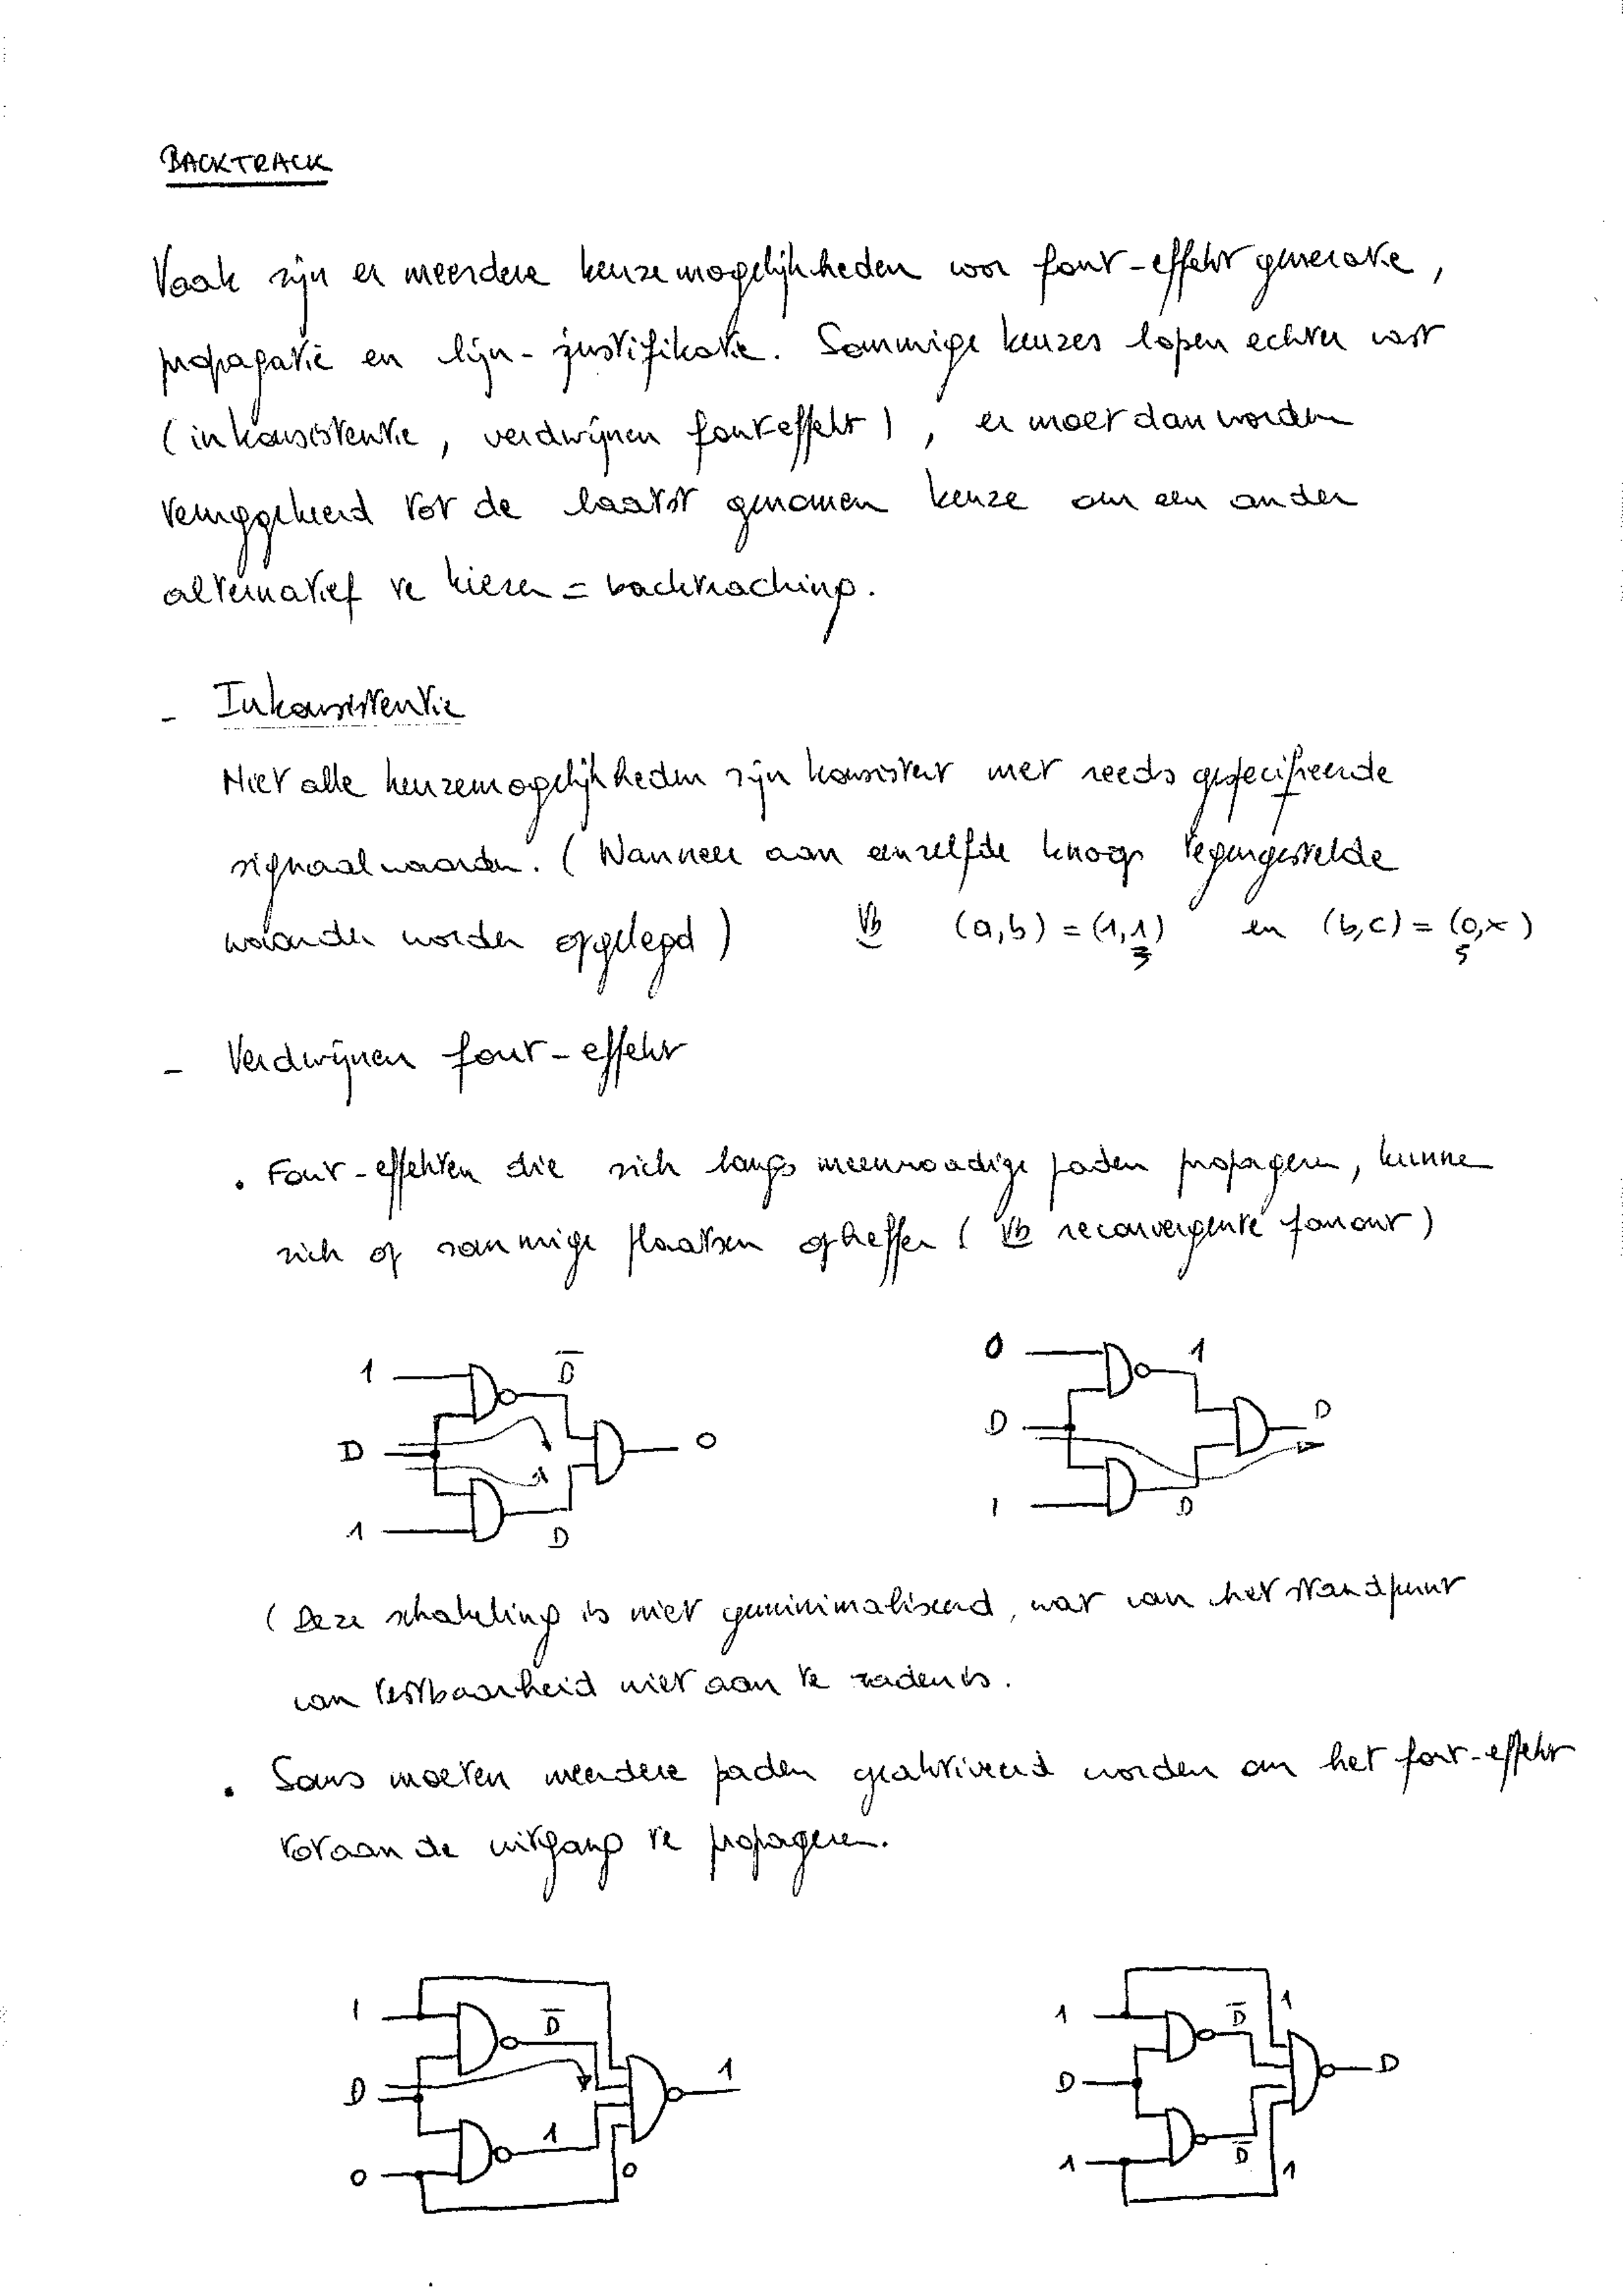 BACKTRACK
Vaak zijn er meerdere keuzemogelijkheden voor fout-effekt generatie,
propagatie en lijn-justifikatie. Sommige keuzes lopen echter vast
(inkonsistentie, verdwijnen fout-effekt), er moet dan worden
teruggekeerd tot de laatst genomen keuze om een ander
alternatief te kiezen = backtracking.
- Inkonsistentie
Niet alle keuzemogelijkheden zijn konsistent met reeds gespecifieerde
signaalwaarden. (Wanneer aan eenzelfde knoop tegengestelde
waarden worden opgelegd) Vb (a,b) = (1,1) en (b,c) = (0,x)
3 5
- Verdwijnen fout-effekt
. Fout-effekten die zich langs meervoudige paden propageren, kunnen
zich op sommige plaatsen opheffen (Vb reconvergente fanout)
1 D̅ 0 1
D 0 D D
1 D 1 D
(Deze schakeling is niet geminimaliseerd, wat van het standpunt
van testbaarheid niet aan te raden is.
. Soms moeten meerdere paden geaktiveerd worden om het fout-effekt
tot aan de uitgang te propageren.
1 D̅ 1 D̅ 1
D 1 D D
0 1 0 1 D̅ 1